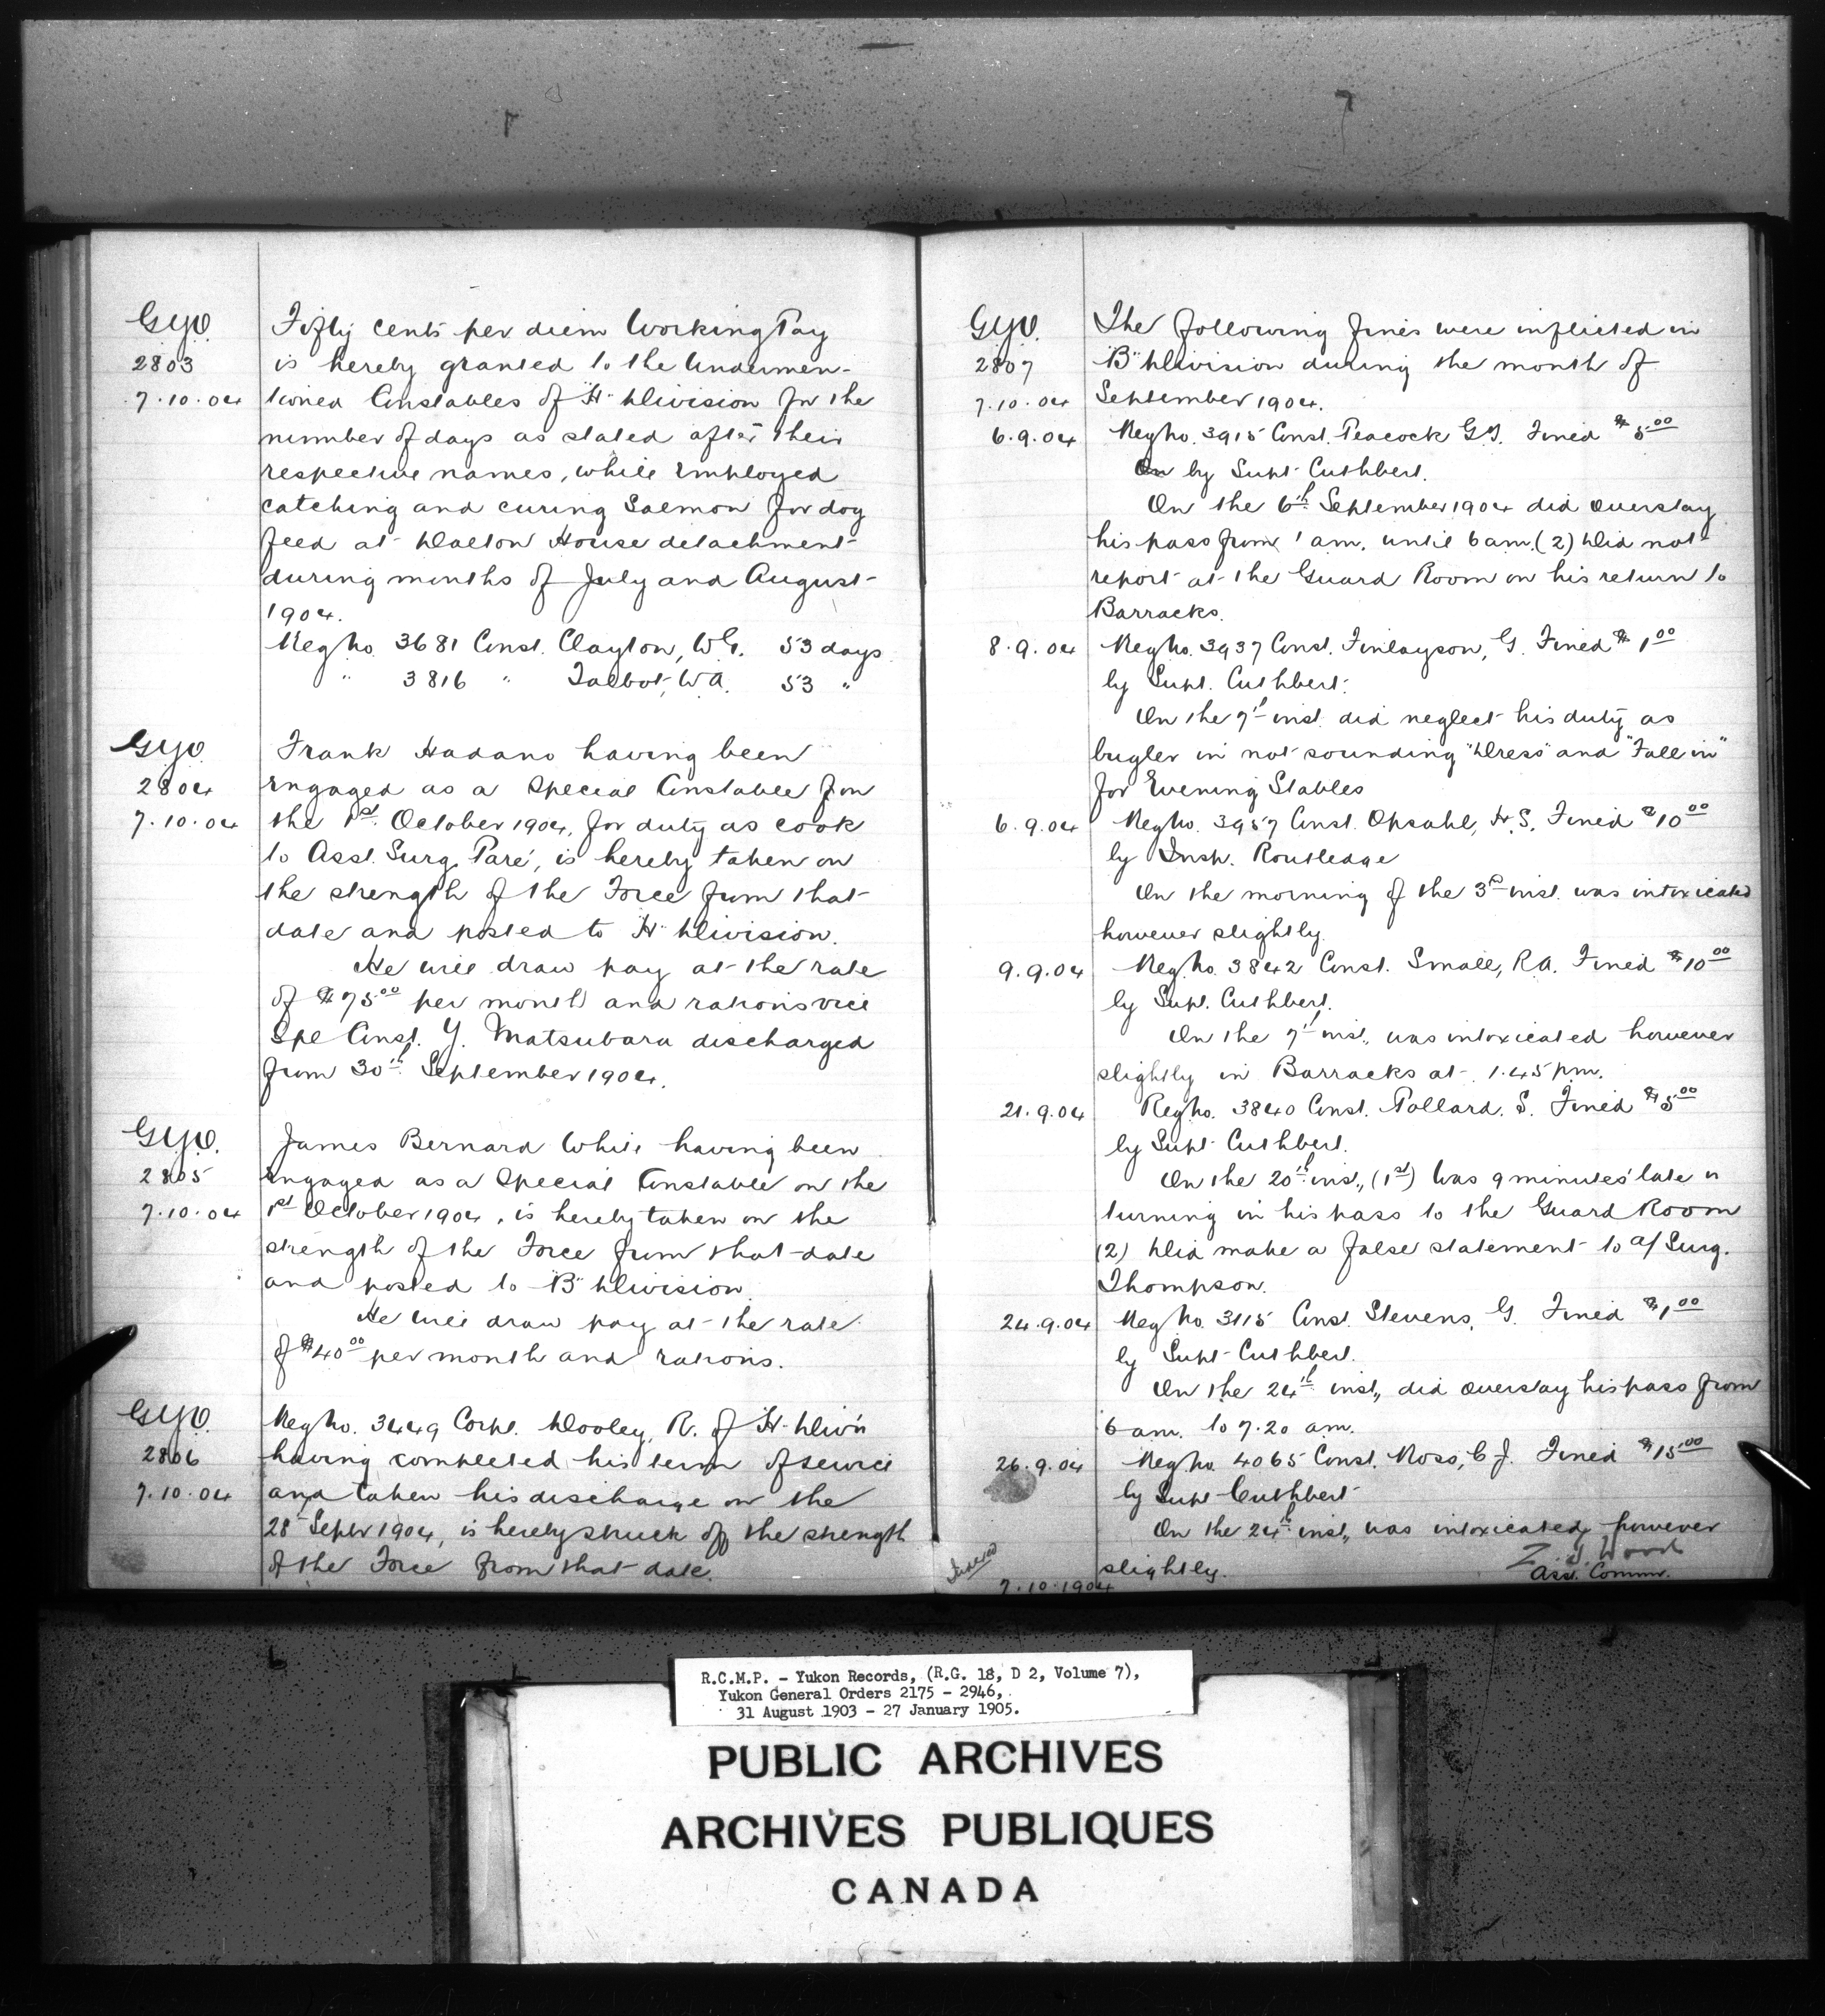 G.Y.O.
2803
7.10.04
Fifty cents per diem Working Pay
is hereby granted to the undermen-
tioned Constables of "H" Division for the
number of days as stated after their
respective names, while employed
catching and curing Salmon for dog
feed at Dalton House detachment
during months of July and August
1904.
Reg No. 3681 Const. Clayton, W.G. 53 days
" 3816 " Talbot, W.A. 53 "
G.Y.O.
2804
7.10.04
Frank Hadano having been
engaged as a Special Constable from
the 1st October 1904, for duty as cook
to Asst. Surg. Paré, is hereby taken on
the strength of the Force from that
date and posted to "H" Division.
He will draw pay at the rate
of $75.00 per month and rations vice
Spl Const. Y. Matsubara discharged
from 30th September 1904.
G.Y.O.
2805
7.10.04
James Bernard White having been
engaged as a Special Constable on the
1st October 1904, is hereby taken on the
strength of the Force from that date
and posted to "B" Division.
He will draw pay at the rate
of $40.00 per month and rations.
G.Y.O.
2806
7.10.04
Reg No. 3449 Corpl. Dooley, R. of "H" Div'n
having completed his term of service
and taken his discharge on the
28th Septr 1904, is hereby struck off the strength
of the Force from that date.
G.Y.O.
2807
7.10.04
The following fines were inflicted in
"B" Division during the month of
September 1904.
6.9.04 Reg No. 3915 Const. Peacock G.J. Fined $5.00
by Supt. Cuthbert.
On the 6th September 1904 did overstay
his pass from 1 am. until 6 am. (2) Did not
report at the Guard Room on his return to
Barracks.
8.9.04 Reg No. 3937 Const. Finlayson, G. Fined $1.00
by Supt. Cuthbert.
On the 7th inst. did neglect his duty as
bugler in not sounding "Dress" and "Fall in"
for Evening Stables
6.9.04 Reg No. 3957 Const. Opsahl, H.S. Fined $10.00
by Insp. Routledge
On the morning of the 3rd inst. was intoxicated
however slightly.
9.9.04 Reg. No. 3842 Const. Small, R.A. Fined $10.00
by Supt. Cuthbert.
On the 7th inst., was intoxicated however
slightly in Barracks at 1.45 pm.
21.9.04 Reg No. 3840 Const. Pollard, S. Fined $5.00
by Supt. Cuthbert.
On the 20th inst., (1st) Was 9 minutes late in
turning in his pass to the Guard Room
(2) Did make a false statement to a/Surg.
Thompson.
24.9.04 Reg No. 3115 Const. Stevens, G. Fined $1.00
by Supt. Cuthbert.
On the 24th inst., did overstay his pass from
6 am. to 7.20 am.
26.9.04 Reg No. 4065 Const. Ross, C.J. Fined $15.00
by Supt Cuthbert
On the 24th inst., was intoxicated, however
slightly.
Z. T. Wood
Asst. Commr.
7.10.1904
R.C.M.P. - Yukon Records, (R.G. 18, D 2, Volume 7),
Yukon General Orders 2175 - 2946,
31 August 1903 - 27 January 1905.
PUBLIC ARCHIVES
ARCHIVES PUBLIQUES
CANADA